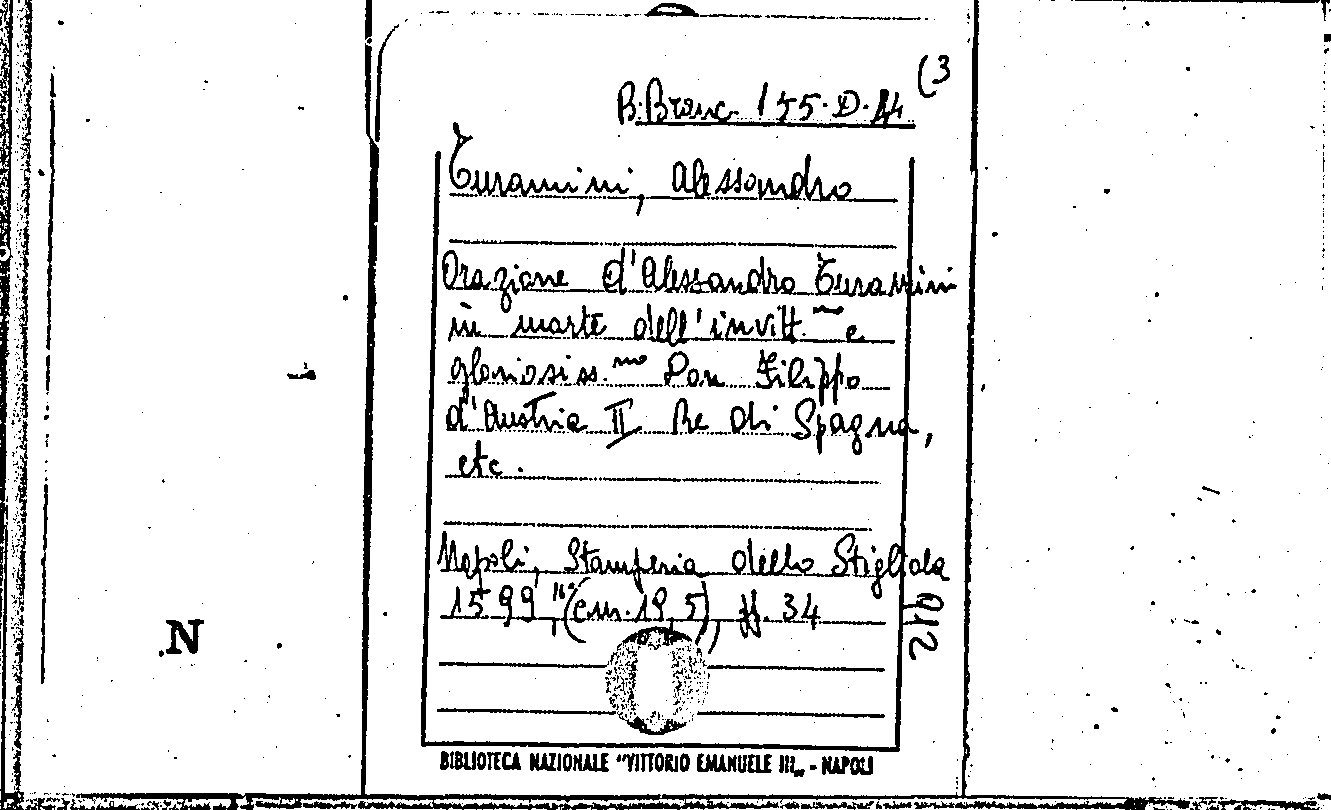 (3
B. Branc. 155. D. 44
Turamini, Alessandro
Orazione d'Alessandro Turamini
in morte dell'invitt.mo e
gloriosiss.mo Don Filippo
d'Austria II Re di Spagna,
etc.
Napoli, Stamperia dello Stigliola
1599, 16º (cm. 19,5), ff. 34
N
BIBLIOTECA NAZIONALE "VITTORIO EMANUELE III„ - NAPOLI